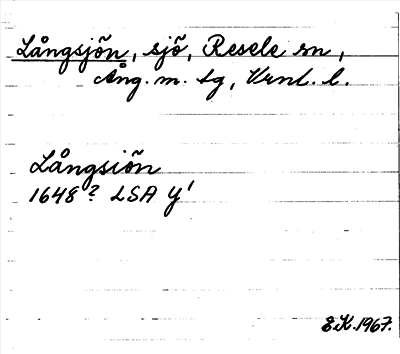 Långsjön, sjö, Resele sn,
Ång. m. tg, Vrnl. l.
Långsiön
1648? LSA Y'
E.K. 1967.